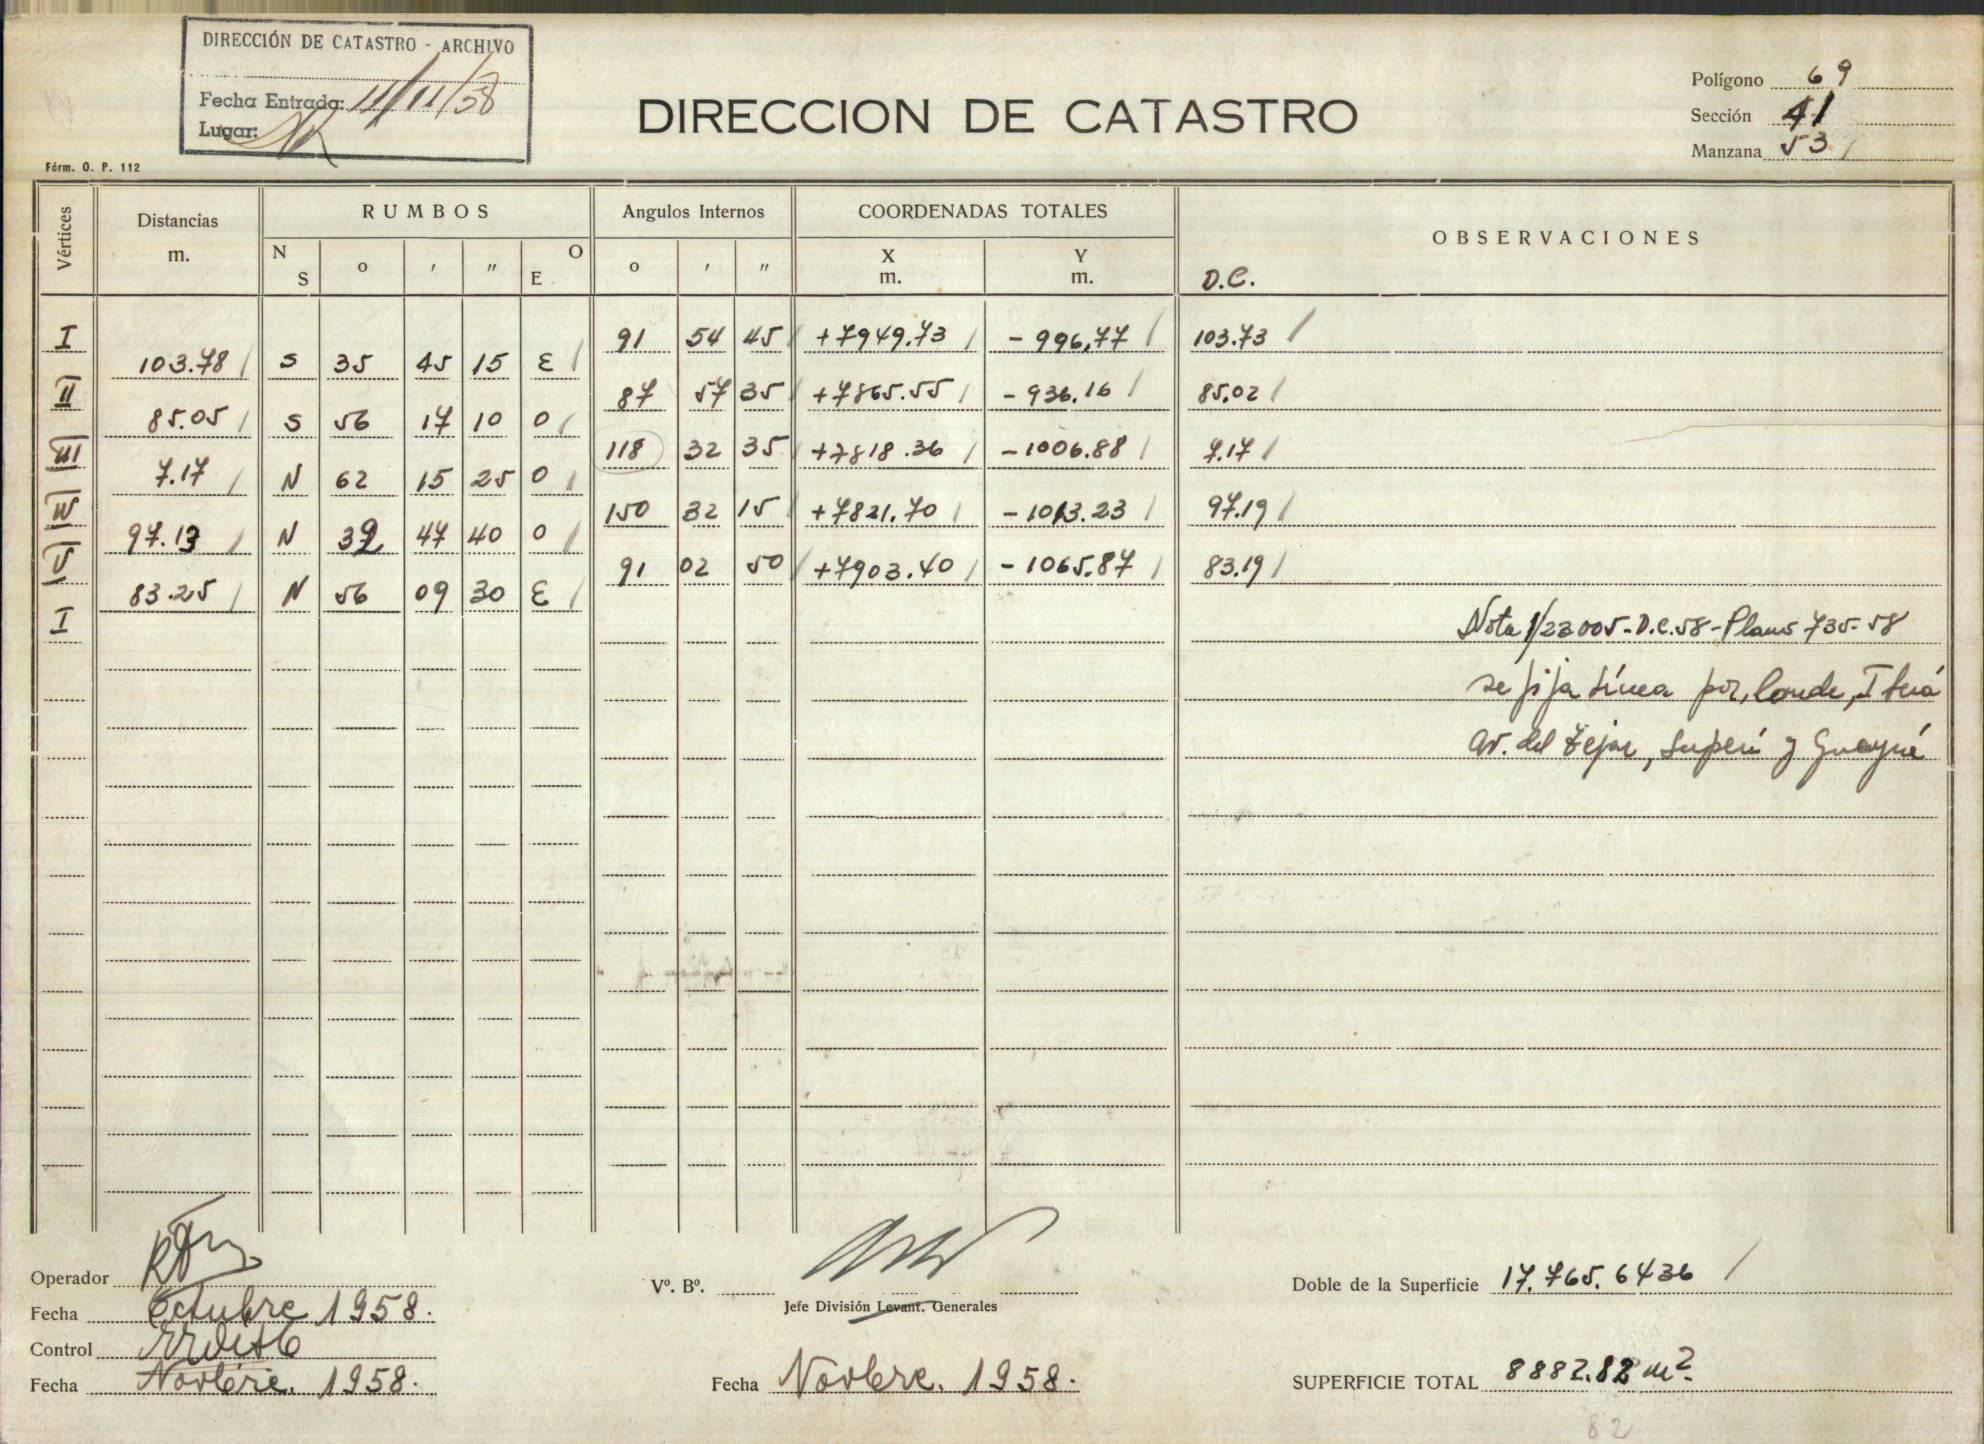 DIRECCIÓN DE CATASTRO - ARCHIVO
Fecha Entrada: 11/11/58
Lugar:
DIRECCION DE CATASTRO
Polígono 69
Sección 41
Manzana 53
Fórm. O. P. 112
Vértices Distancias m. RUMBOS Angulos Internos COORDENADAS TOTALES OBSERVACIONES
N S o ' " O E o ' " X m. Y m. D.C.
I 91 54 45 +7949.73 -996,77 103.73
103.78 S 35 45 15 E
II 87 57 35 +7865.55 -936.16 85.02
85.05 S 56 17 10 O
III 118 32 35 +7818.36 -1006.88 7.17
7.17 N 62 15 25 O
IV 150 32 15 +7821.70 -1013.23 97.19
97.13 N 32 47 40 O
V 91 02 50 +7903.40 -1065.87 83.19
83.25 N 56 09 30 E
I
Nota 1/23005-D.C.58-Plano 735-58
se fija línea por, Conde, Iberá
av. del Tejar, Superí y Guayrá
Operador
Fecha Octubre 1958.
Control
Fecha Novbre. 1958.
Vº. Bº.
Jefe División Levant. Generales
Fecha Novbre. 1958.
Doble de la Superficie 17.765.6436
SUPERFICIE TOTAL 8882.82 m².
82